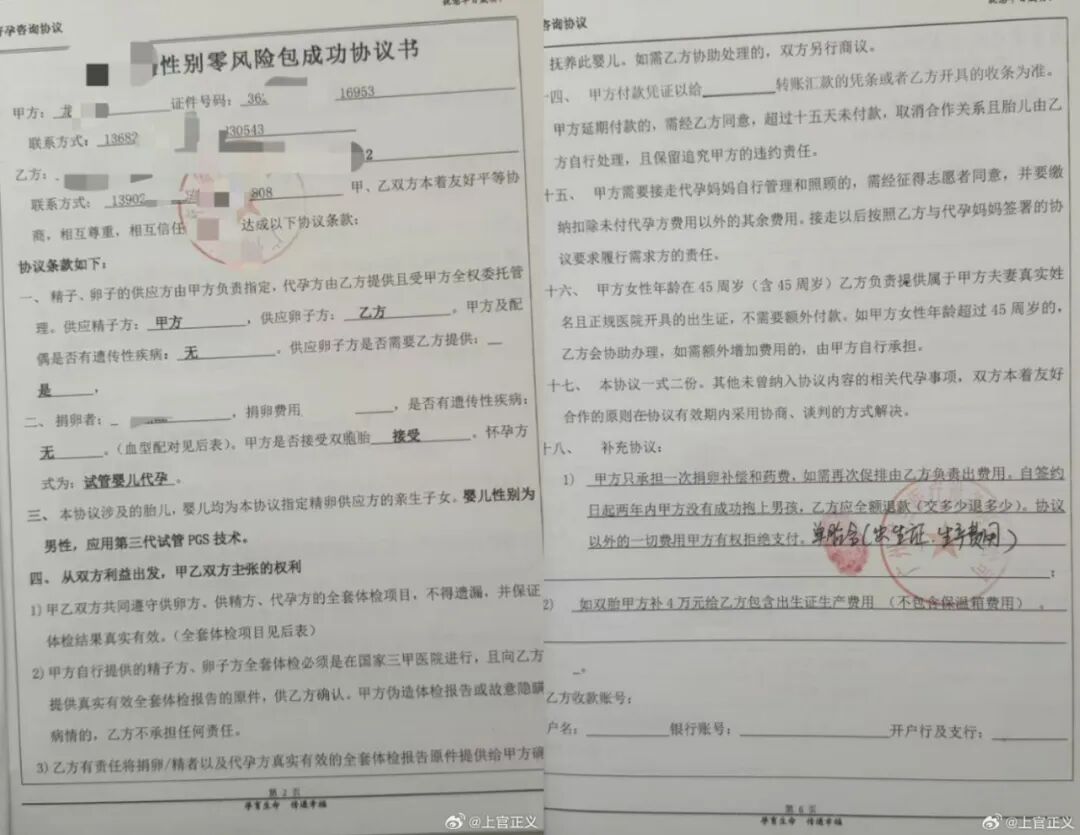 孕咨询协议
性别零风险包成功协议书
甲方：龙 证件号码：362 16953
联系方式：13682 330543
乙方： 2
联系方式：13902 808 甲、乙双方本着友好平等协
商，相互尊重，相互信任 达成以下协议条款：
协议条款如下：
一、 精子、卵子的供应方由甲方负责指定，代孕方由乙方提供且受甲方全权委托管
理。供应精子方：甲方，供应卵子方：乙方。甲方及配
偶是否有遗传性疾病：无。供应卵子方是否需要乙方提供：
是，
二、 捐卵者： ，捐卵费用 ，是否有遗传性疾病：
无。（血型配对见后表）。甲方是否接受双胞胎 接受。怀孕方
式为：试管婴儿代孕。
三、 本协议涉及的胎儿，婴儿均为本协议指定精卵供应方的亲生子女。婴儿性别为
男性，应用第三代试管 PGS 技术。
四、 从双方利益出发，甲乙双方主张的权利
1) 甲乙双方共同遵守供卵方、供精方、代孕方的全套体检项目，不得遗漏，并保证
体检结果真实有效。（全套体检项目见后表）
2) 甲方自行提供的精子方、卵子方全套体检必须是在国家三甲医院进行，且向乙方
提供真实有效全套体检报告的原件，供乙方确认。甲方伪造体检报告或故意隐瞒
病情的，乙方不承担任何责任。
3) 乙方有责任将捐卵/精者以及代孕方真实有效的全套体检报告原件提供给甲方确
第 2 页
孕育生命 传递幸福
咨询协议
抚养此婴儿。如需乙方协助处理的，双方另行商议。
十四、 甲方付款凭证以给________转账汇款的凭条或者乙方开具的收条为准。
甲方延期付款的，需经乙方同意，超过十五天未付款，取消合作关系且胎儿由乙
方自行处理，且保留追究甲方的违约责任。
十五、 甲方需要接走代孕妈妈自行管理和照顾的，需经征得志愿者同意，并要缴
纳扣除未付代孕方费用以外的其余费用。接走以后按照乙方与代孕妈妈签署的协
议要求履行需求方的责任。
十六、 甲方女性年龄在 45 周岁（含 45 周岁）乙方负责提供属于甲方夫妻真实姓
名且正规医院开具的出生证，不需要额外付款。如甲方女性年龄超过 45 周岁的，
乙方会协助办理，如需额外增加费用的，由甲方自行承担。
十七、 本协议一式二份。其他未曾纳入协议内容的相关代孕事项，双方本着友好
合作的原则在协议有效期内采用协商、谈判的方式解决。
十八、 补充协议：
1) 甲方只承担一次捐卵补偿和药费，如需再次促排由乙方负责出费用。自签约
日起两年内甲方没有成功抱上男孩，乙方应全额退款（交多少退多少）。协议
以外的一切费用甲方有权拒绝支付。单胎含（出生证、生产费用）
；
2) 如双胎甲方补 4 万元给乙方包含出生证生产费用 （不包含保温箱费用）。
。
乙方收款账号：
户名：________银行账号：________开户行及支行：________
第 6 页
孕育生命 传递幸福
@上官正义
@上官正义